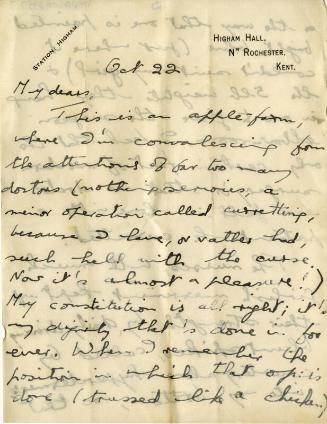 STATION: HIGHAM.
HIGHAM HALL,
Nʳ ROCHESTER,
KENT.
Oct 22
My dears,
This is an apple-farm,
where I'm convalescing from
the attentions of far too many
doctors (nothing serious, a
minor operation called curetting,
because I have, or rather had,
such hell with the curse.
Now it's almost a pleasure!)
My constitution is all right; it's
my dignity that's done in for
ever. When I remember the
position in which that op: is
done (trussed like a chicken)